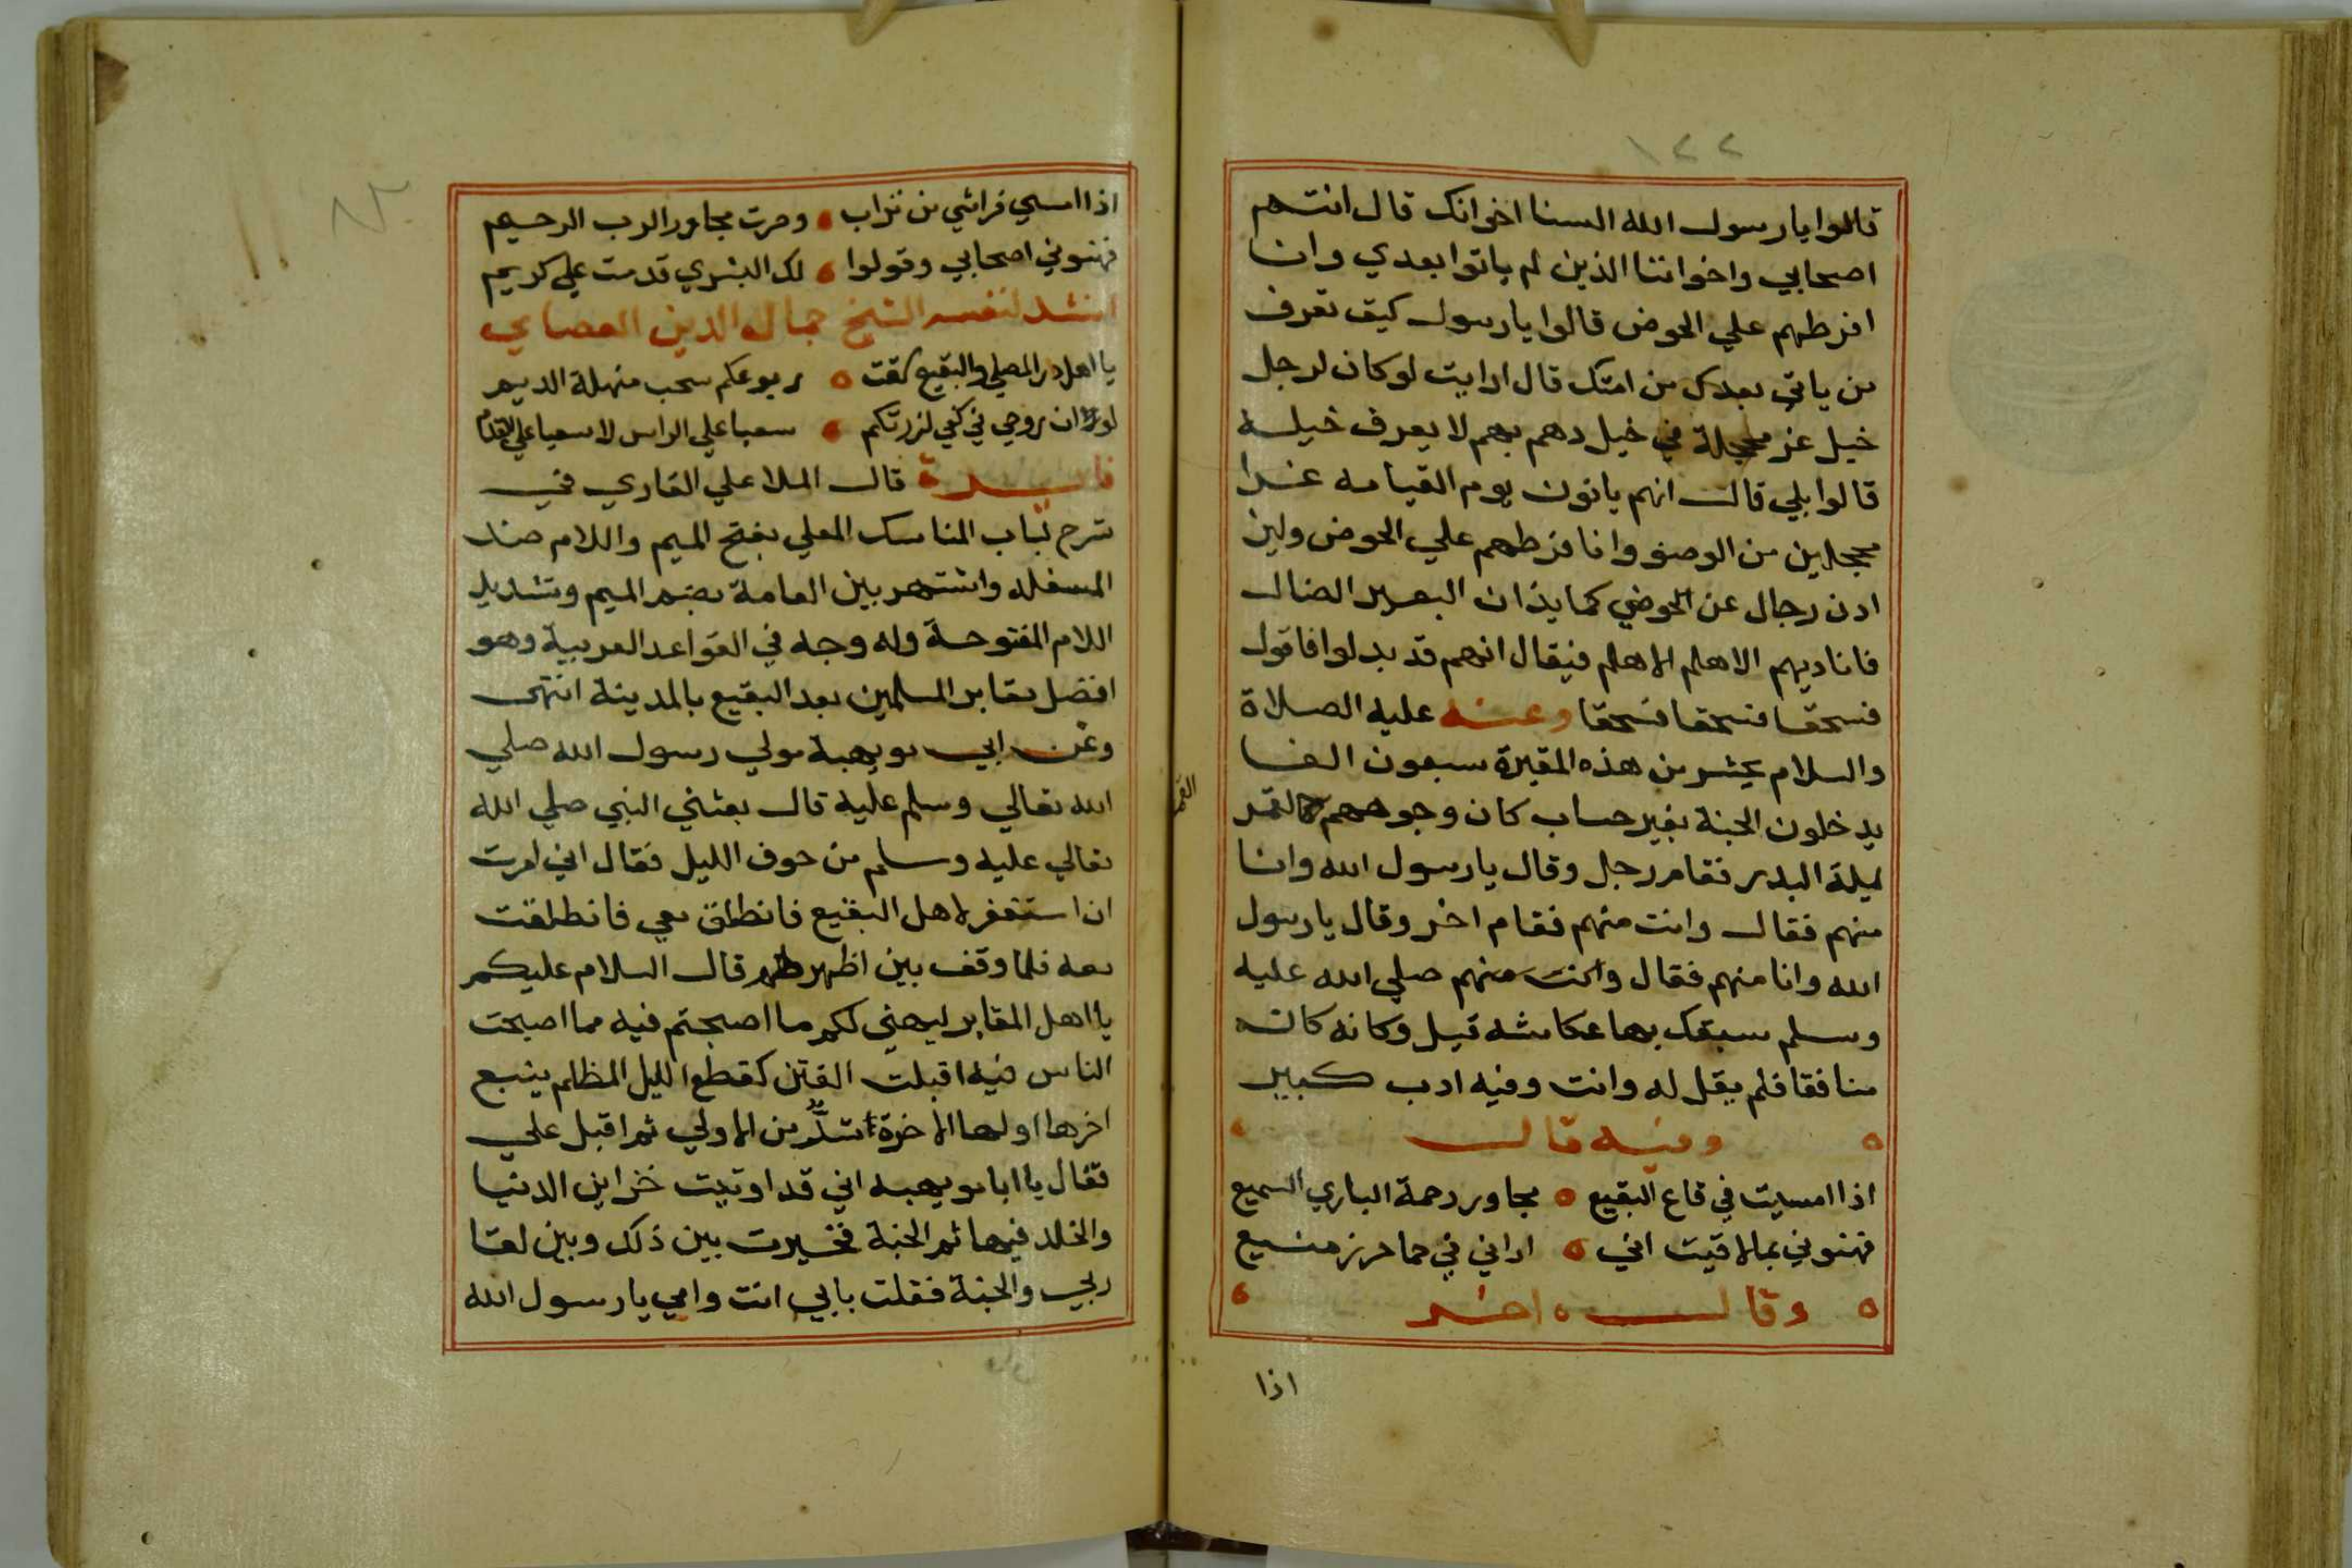 ١٢٢
قالوا يا رسول الله السنا اخوانك قال انتم
اصحابي واخواننا الذين لم ياتوا بعدي وانا
افرطهم علي الحوض قالوا يا رسول كيف تعرف
من ياتي بعدك من امتك قال ارايت لوكان لرجل
خيل غر محجلة في خيل دهم بهم لا يعرف خيله
قالوا بلي قال انهم ياتون يوم القيامه غرا
محجلين من الوضو وانا فرطهم علي الحوض ولين
ادن رجال عن الحوضي كما يذان البعير الضال
فاناديهم الاهلم الاهلم فيقال انهم قد بدلوا فاقول
فسحقا فسحقا فسحقا وعنه عليه الصلاة
والسلام يحشر من هذه المقبرة سبعون الفا
يدخلون الجنة بغير حساب كان وجوههم كالقمر
القمر
ليلة البدر فقام رجل وقال يا رسول الله وانا
منهم فقال وانت منهم فقام اخر وقال يا رسول
الله وانا منهم فقال وانت منهم صلي الله عليه
وسلم سبقك بها عكاشه قيل وكانه كان
منافقا فلم يقل له وانت وفيه ادب كبير
وفيه قال
اذا امسيت في قاع البقيع مجاور رحمة الباري السميع
فهنوني بمالاقيت اني اراني في حما حرز منيع
وقال اخر
اذا
اذا امسي فراشي من تراب وصرت مجاور الرب الرحيم
فهنوني اصحابي وقولوا لك البشري قدمت علي كريم
انشد لنفسه الشيخ جمال الدين العصامي
يا اهل المصلي والبقيع سقت ربوعكم سحب منهلة الديم
لو ان روحي في كفي لزرتكم سعيا علي الراس لا سعيا علي القدم
فايدة قال الملا علي القاري في
شرح لباب المناسك المعلي بفتح الميم واللام ضد
المسفله واشتهر بين العامة بضم الميم وتشديد
اللام المفتوحة وله وجه في القواعد العربية وهو
افضل مقابر المسلمين بعد البقيع بالمدينة انتهى
وعن ابي مويهبة مولي رسول الله صلي
الله تعالي وسلم عليه قال بعثني النبي صلي الله
تعالي عليه وسلم من جوف الليل فقال اني امرت
ان استغفر لاهل البقيع فانطلق معي فانطلقت
معه فلما وقف بين اظهرهم قال السلام عليكم
يا اهل المقابر ليهني لكم ما اصبحتم فيه مما اصبحت
الناس فيه اقبلت الفتن كقطع الليل المظلم يتبع
اخرها اولها الاخرة اشد من الاولي ثم اقبل علي
فقال يا ابا مويهبه اني قد اوتيت خزاين الدنيا
والخلد فيها ثم الجنة فخيرت بين ذلك وبين لقا
ربي والجنة فقلت بابي انت وامي يا رسول الله